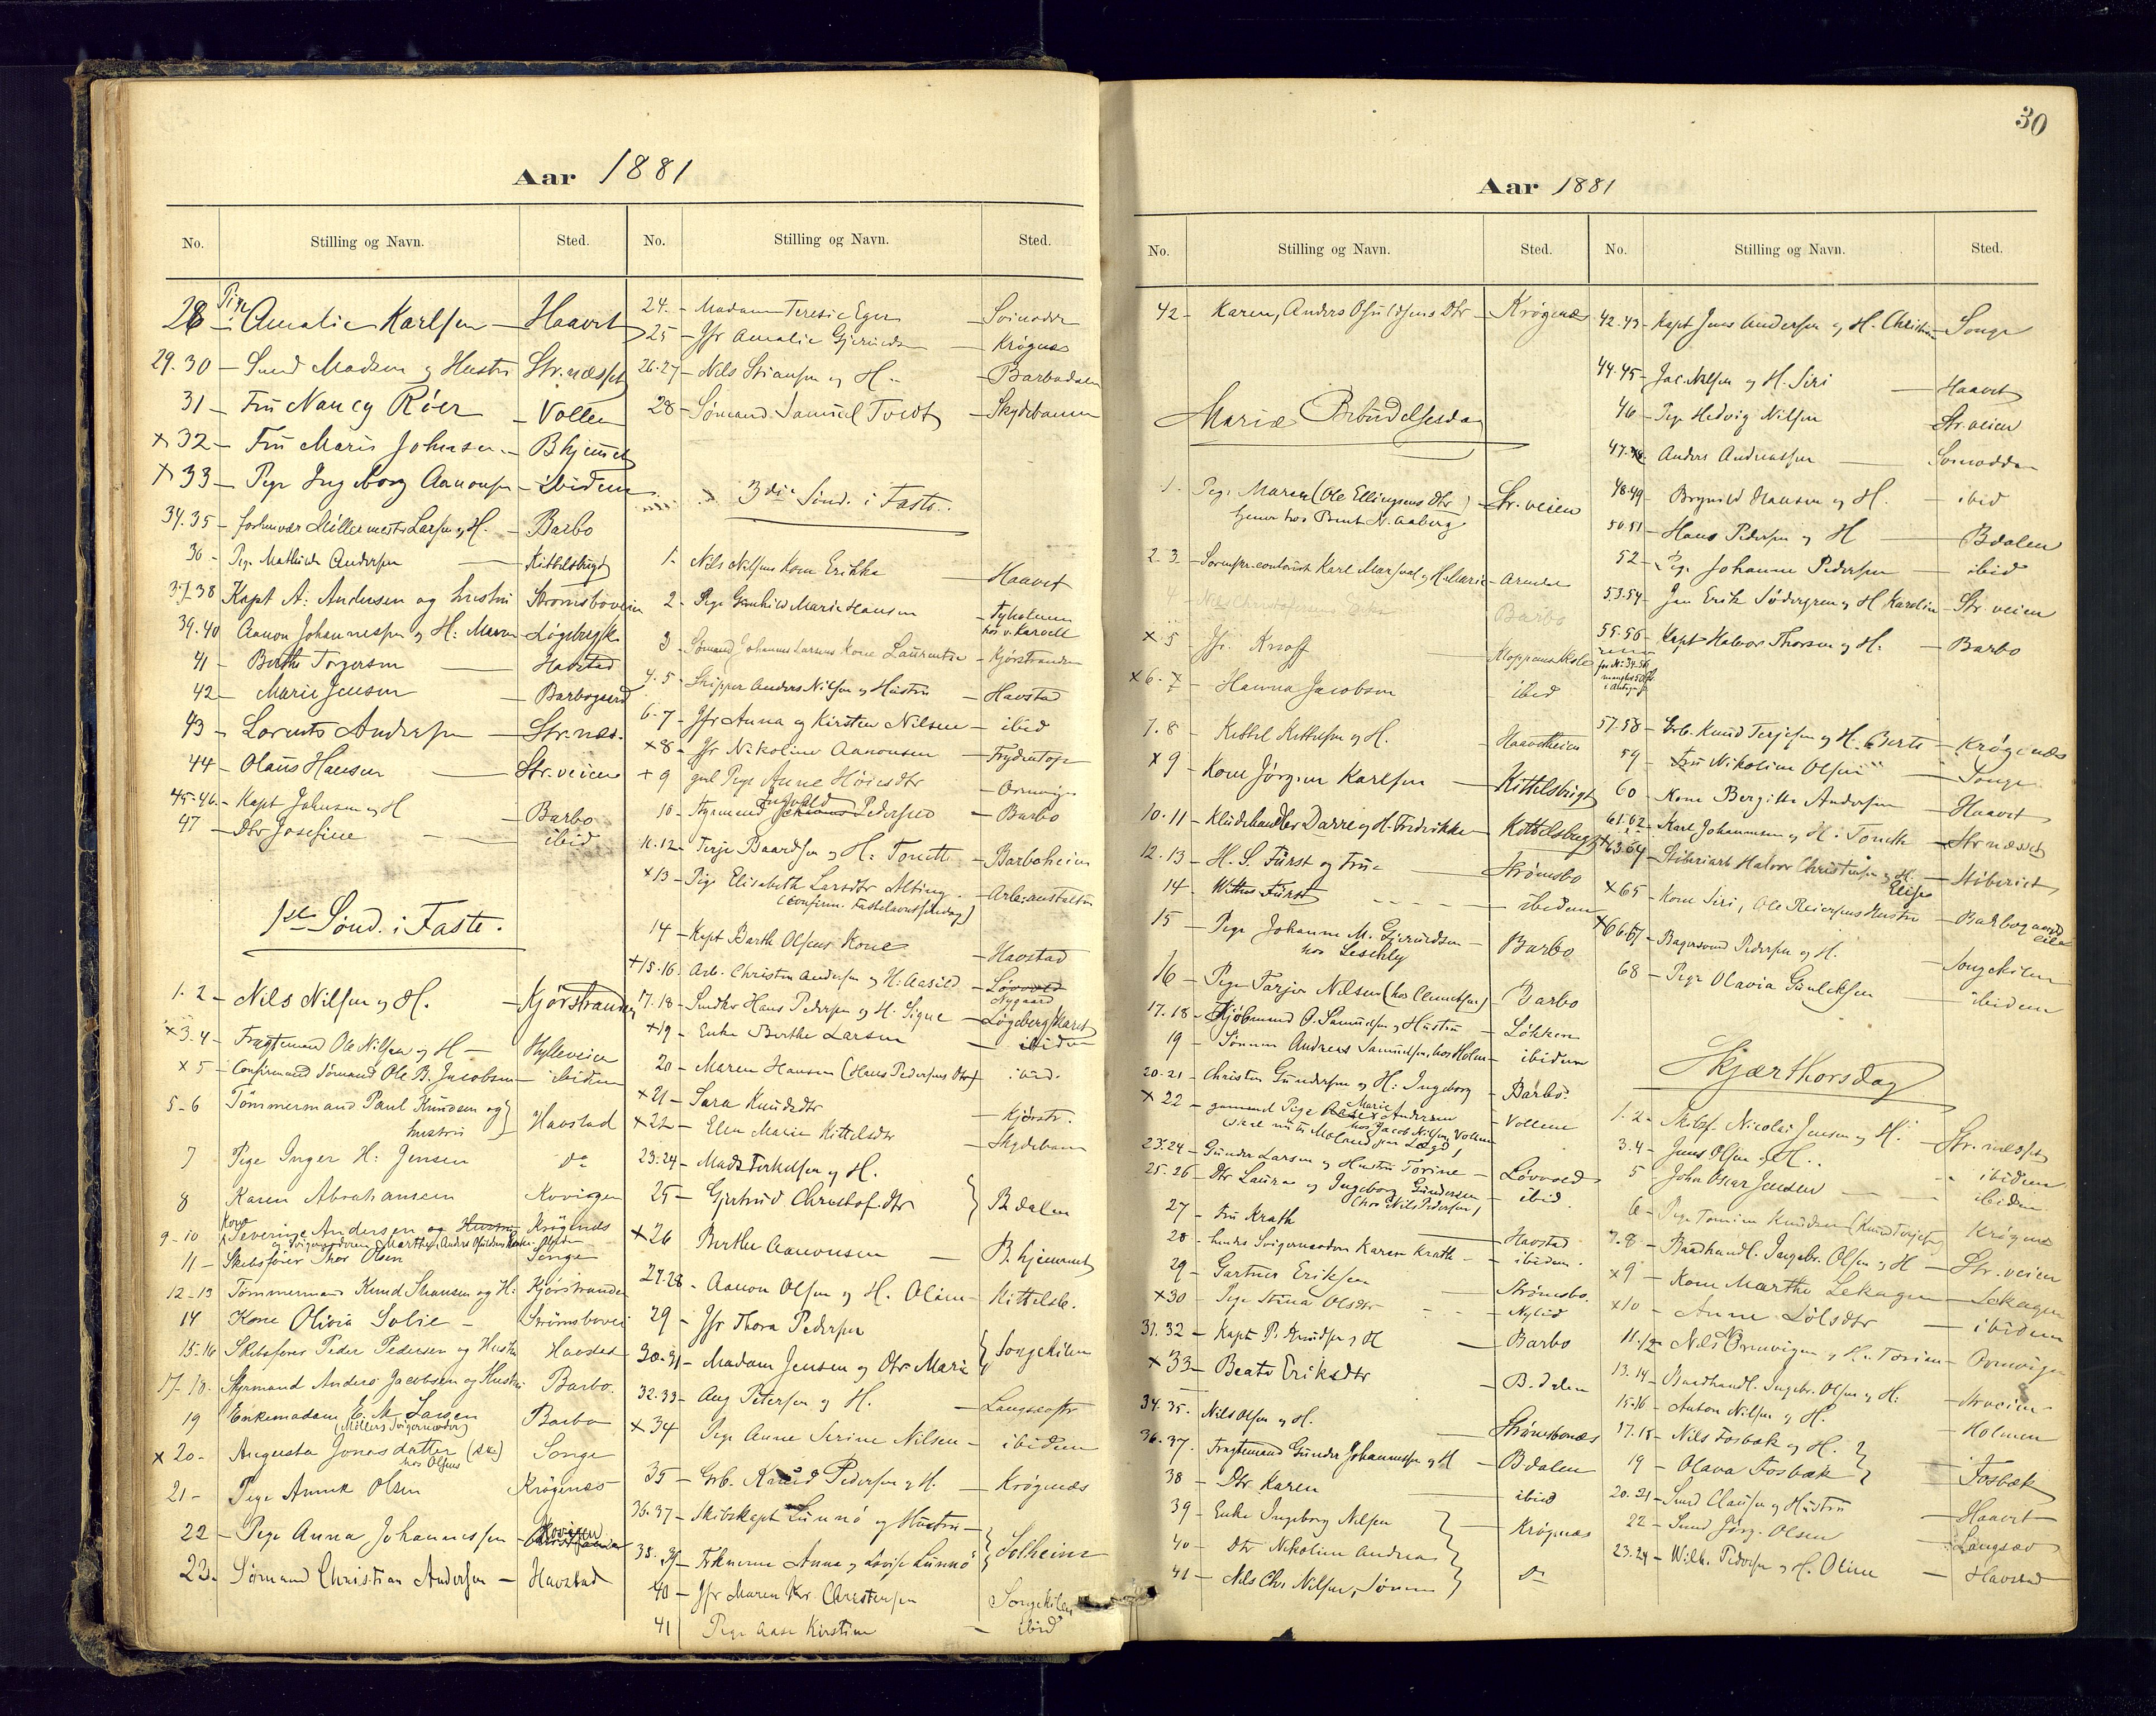 30
Aar 1881
No. Stilling og Navn. Sted.
28 Pige Amalie Karlsen — Haavet
29.30 — Smed Madsen og Hustru Str.næsset
31 — Fru Nancy Röer — Vollen
x 32 — Fru Marie Johnsen — Bhjemmet
x 33 — Pige Ingeborg Aanonsen — ibidem
34.35 — forhenvær Möllermester Larsen og H. — Barbo
36 — Pige Mathilde Andersen — Kittelsbugt
37.38 Kapt A. Andersen og hustru Strömsboveien
39.40 Aanon Johannessen og H: Maren — Lögebergk.
41 — Berthe Torgersen — Havstad
42 — Marie Jensen — Barbogaard
43 — Lorents Andersen — Str.næs.
44 — Olaus Hansen — Str.veien
45-46 — Kapt Johnsen og H — Barbo
47 — Dtr Josefine — ibid
1ste Sönd. i Faste.
1.2 — Nils Nilsen og H. — Kjörstranden
x 3.4 — Fragtemand Ole Nilsen og H — Hylleveien
x 5 — Confirmand Sömand Ole B. Jacobsen — ibidem
5-6 Tömmermand Paul Knudsen og hustru } Havstad
7 Pige Inger H: Jensen do
8 Karen Abrahamsen Kovigen
9-10 Kone Severine Andersen og Hustru Krögenæs
og Svigermoderen Marthe, Anders
11 — Skibsförer Thor Olsen Songe
12-13 Tömmermand Knud Skansen og H: Kjörstranden
14 Kone Olivia Solie — Strömsbovei
15-16 Skibsförer Peder Pedersen og Hustru Havstad
17-18. Styrmand Anders Jacobsen og Hustru Barbo.
19 Enkemadam E. M. Larsen (Möllers Svigermoder) Barbo
x 20 — Augusta Jonasdatter hos Olsens Songe
21 — Pige Annek Olsen Krögenæs
22 — Pige Anna Johannessen — Kovigen
23. Sömand Christian Andersen — Havstad
No. Stilling og Navn. Sted.
24 — Madam Teresie Eger — Soinodden
25 — Jfr Amalie Gjerulds — Krögnæs
26.27 — Nils Stiansen og H. — Barbodalen
28 — Sömand Samuel Tvedt — Skydebanen
3die Sönd. i Faste.
1 — Nils Nilsens Kone Erikke — Haavet
2 — Pige Gunhild Marie Hansen — Tyholmen hos v. Karvell
3 — Sömand Johannes Larsens Kone Laurentze — Kjörstranden
4.5 — Skipper Anders Nilsen og Hustru — Havstad
6-7 — Jfr Anna og Kirsten Nilsen — ibid
x 8 — Jfr Nikoline Aanonsen — Frydentop
+ 9 gml Pige Anne — 
10 — Styrmand Ingvald Pedersen — Barbo
11.12 — Terje Baardsen og H: Tonette — Barboheien
x 13 — Pige Elisabeth Larsdtr Alting — Arb:anstalten
(Confirm. Fastelavnssöndag)
14 — Kapt Barth Olsens Kone — Havstad
+ 15.16. Arb. Christen Andersen og H: Aasild — Nygaard
17.18 — Smedkr Hans Pedersen og H. Signe — Lögeberg
+ 19 — Enke Berthe Larsen — ibidem
20 — Maren Hansen (Hans Pedersens Dtr) — ibid.
x 21 — Sara Knudsdtr — Kjörstr.
x 22 — Elen Marie Kittelsdtr — Skydeban
23.24 — Mads Terkelsen og H.
25 — Gjertrud Christofdtr } B.dalen
x 26 Berthe Aanonsen — B.hjemmet
27.28 — Aanon Olsen og H. Oline — Kittelsb.
29 — Jfr Thora Pedersen
30-31 — Madam Jensen og Dtr Marie } Songekilen
32.33 — Aug Petersen og H. — Langsæ
x 34 Pige Anne Serine Nilsen — ibidem
35 — Grb. Knud Pedersen og H. — Krögnæs
36.37 — Skibskapt Lunnö og Hustru
38.39 — Frknerne Anna og Lovise Lunnö } Solheim
40 — Jfr Maren Kr. Christensen Songekilen
41 Pige Aase Kirstine — ibid
Aar 1881
No. Stilling og Navn. Sted.
42 — Karen, Anders Osuldsens Dtr — Krögnæs
Mariæ Bebudelsesdag
1. Pige Maren (Ole Ellingsens Dtr) — Str.veien
tjener hos Bernt N. Aaberg
2.3 — Karl Marsval og H. Marie — Arendal
4 — Barbo
x 5 Jfr. Knoff —
x 6 — Hanna Jacobsen — ibid
7.8 — Kittel Kittelsen og H. — Haaveheien
x 9 — Kone Jörgine Karlsen — Kittelsbugt
10.11 — Kludehandler Darre og H. Fredrikke — Kittelsbugt
12.13 — H. S. Fürst og Frue — Strömsbo
14 — Wittus Fürst — ibidem
15 — Pige Johanne M. Gjeruldsen — Barbo
hos Leschly
16 — Pige Tarjer Nilsen (hos Clemetsen) Barbo
17.18 — Kjöbmand O. Samuelsen og Hustru — Lökken
19 — Sönnen Andreas Samuelsen, hos Holm — ibidem
20-21 — Christen Gundersen og H: Ingeborg — Barbo.
x 22 — gammel Pige Marie Andersen — Vollene
hos Jacob Nilsen Vollene
23.24 — Gunder Larsen og Hustru Torine — Lövved
25.26 — Dtr Laura og Ingeborg Gundersen — ibid.
(hos Nils Pedersen)
27 — Fru Krath — Havstad
28 — hendes Svigermoder Karen Krath — ibidem.
29 — Gartner Eriksen — Strömsbo.
x 30 — Pige Stina Olsdtr — Nylund
31.32 — Kapt P. Knudsen og H — Barbo
x 33 — Beate Eriksdtr — B.dalen
34.35. — Nils Olsen og H. — Strömsbonæs
36.37. — Fragtemand Gunder Johannessen og H — Bdalen
38 — Dtr Karen — ibid
39 — Enke Ingeborg Nilsen — Krögnæs
40 — Dtr Nikoline Andrea
41 — Nils Chr Nilsen, Sönnen } do
No. Stilling og Navn. Sted.
42.43 — Kapt Jens Andersen og H. Christine — Songe
44.45 — Jac. Nilsen og H. Siri — Haavet
46 — Pige Hedvig Nilsen Str.veien
47. Anders Andreassen — Soinodden
48.49 — Brynild Hansen og H. — ibid
50.51 — Hans Pedersen og H — Bdalen
52 — Pige Johanne Pedersen — ibid
53.54 — Jan Erik Södergren og H Karoline — Str veien
55.56 — Kapt Halvor Thorsen og H. — Barbo
57.58 — Grb. Knud Terjesen og H. Berte — Krögenæs
59 — Fru Nikoline Olsen — Songe
60 — Kone Bergitte Andersen — Haavet
61.62 — Karl Johannesen og H. Tonette — Str næsset
+ 63.64 — Halvor Christensen og H. Elise — Stiberiet
x 65 — Kone Siri, Ole Reiersens Hustru — Barbogaard
x 66.67 — Bagersvend Pedersen og H. — Songekilen
68 — Pige Olavia Gunleksen — ibidem
Skjærthorsdag
1.2 — Skibsf. Nicolai Jensen og H. — Str.næsset
3.4 — Jens Olsen og H. — ibidem
5 — John Oscar Jensen — ibidem
6 — Pige Tomine Knudsen (Knud Terjesen) Krögnæs
7.8 — Baadhandl. Ingebr. Olsen og H — Str.veien
x 9 — Kone Marthe Lekagen — Lekagen
x 10 — Anne Lölsdtr — ibidem
11.12 — Nils Ormvigen og H. Torine — Ormvigen
13.14 — Baadhandl. Ingebr. Olsen og H: — Strveien
15.16 — Anton Nilsen og H. — Holmen
17.18 — Nils Fosbæk og H. }
19 — Olava Fosbæk } Fosbæk
20.21 — Smed Clausen og Hustru — Haavet
22 — Smed Jörg. Olsen — Langsæ
23.24 — Wilh. Pedersen og H. Oline — Havstad